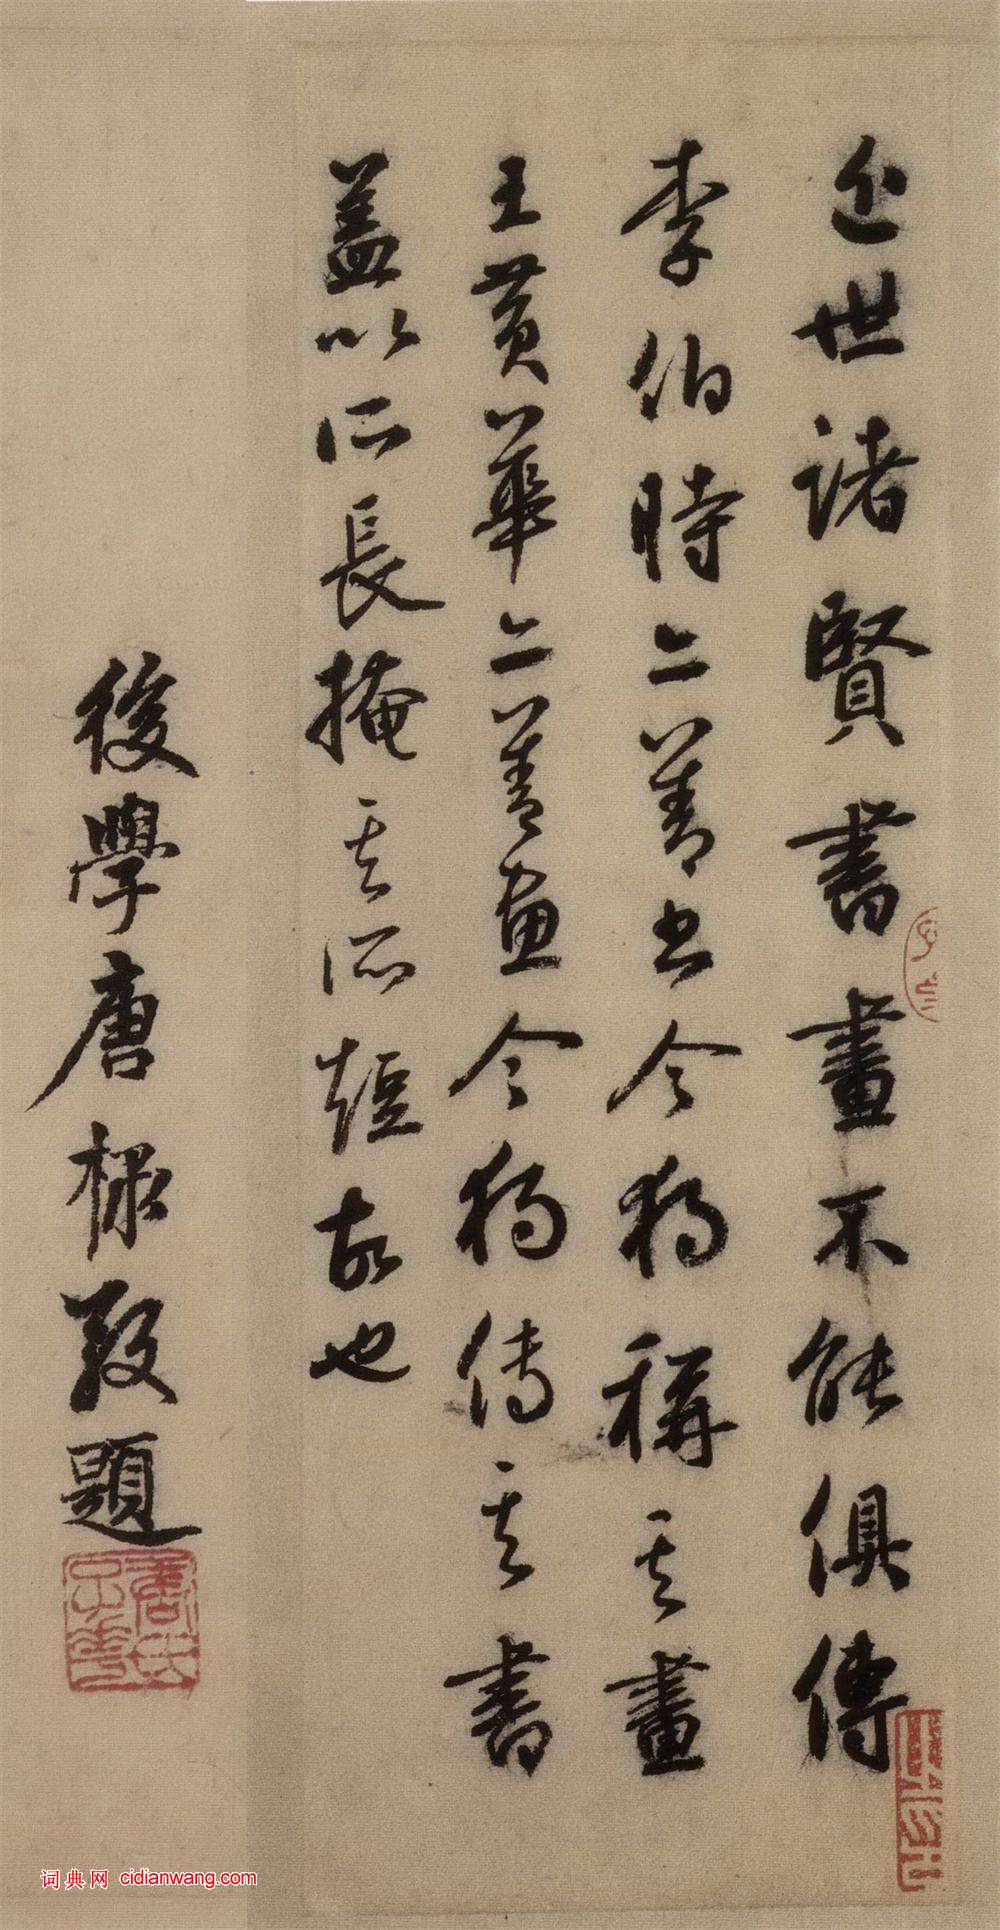 近世諸賢書畫不能俱傳
李伯時亦善書今獨稱其畫
王黃華亦善畫今獨傳其書
蓋以所長掩其所短故也
後學唐棣敬題
词典网 cidianwang.com